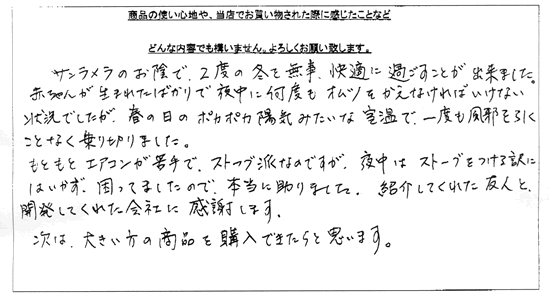 商品の使い心地や、当店でお買い物された際に感じたことなど
どんな内容でも構いません。よろしくお願い致します。
サンラメラのお陰で、2度の冬を無事、快適に過ごすことが出来ました。
赤ちゃんが生まれたばかりで夜中に何度もオムツをかえなければいけない
状況でしたが、春の日のポカポカ陽気みたいな室温で、一度も風邪を引く
ことなく乗り切りました。
もともとエアコンが苦手で、ストーブ派なのですが、夜中はストーブをつける訳に
はいかず、困ってましたので、本当に助りました。紹介してくれた友人と、
開発してくれた会社に感謝します。
次は、大きい方の商品を購入できたらと思います。